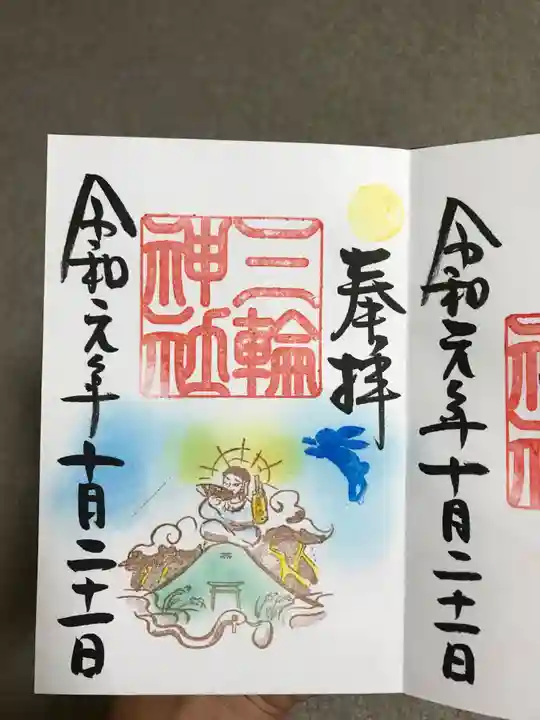 奉拝
三輪
神社
令和元年十月二十一日
令和元年十月二十一日